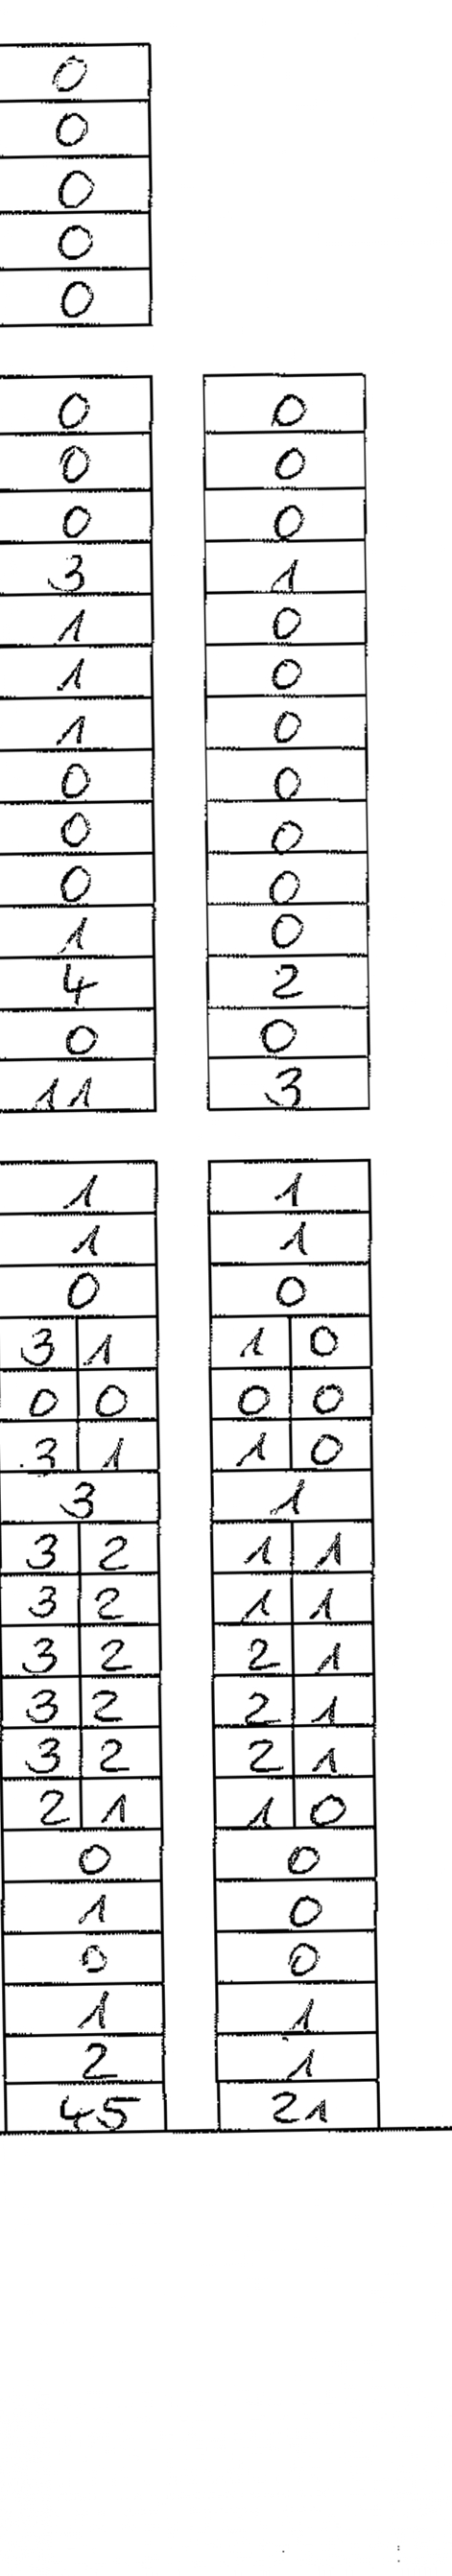 0
0
0
0
0
0 0
0 0
0 0
3 1
1 0
1 0
1 0
0 0
0 0
0 0
1 0
4 2
0 0
11 3
1 1
1 1
0 0
3 1 1 0
0 0 0 0
3 1 1 0
3 1
3 2 1 1
3 2 1 1
3 2 2 1
3 2 2 1
3 2 2 1
2 1 1 0
0 0
1 0
0 0
1 1
2 1
45 21